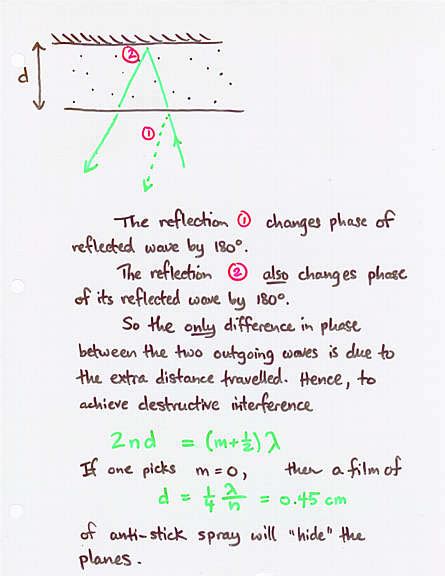 ②
d
①
The reflection ① changes phase of
reflected wave by 180°.
The reflection ② also changes phase
of its reflected wave by 180°.
So the only difference in phase
between the two outgoing waves is due to
the extra distance travelled. Hence, to
achieve destructive interference
2nd = (m+½)λ
If one picks m=0, then a film of
d = ¼ λ/n = 0.45 cm
of anti-stick spray will "hide" the
planes.